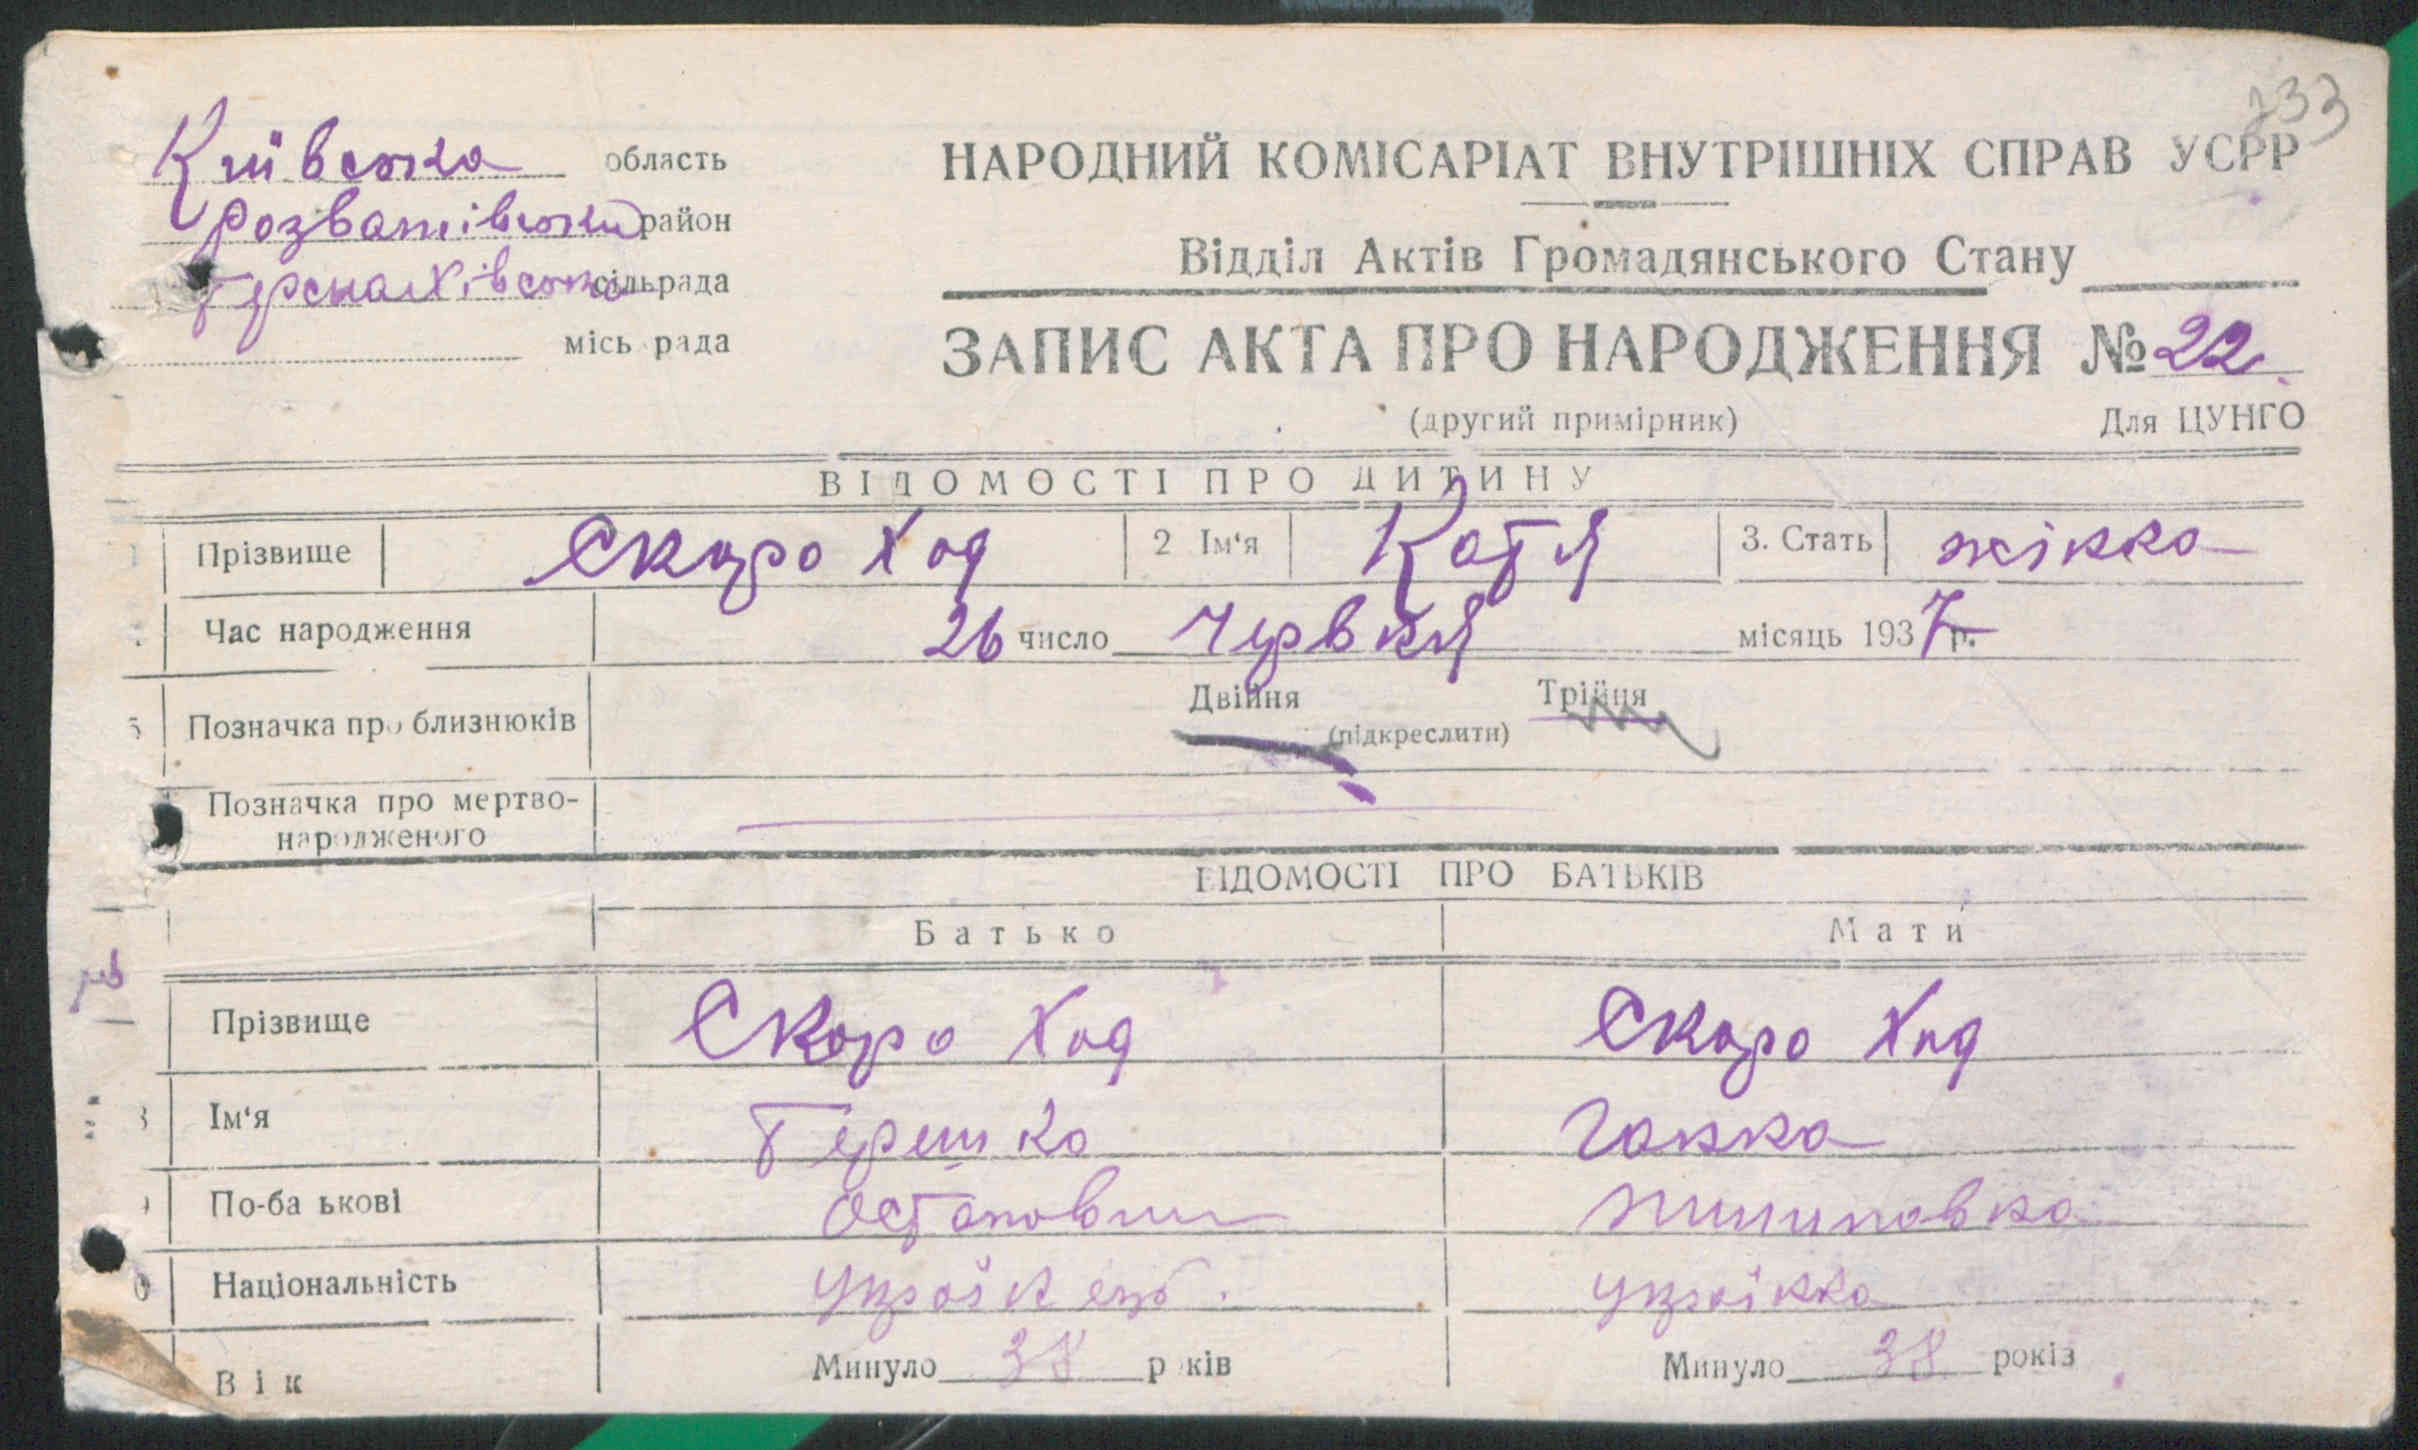 133
Київська область
Розважівський район
сільрада
місь рада
НАРОДНИЙ КОМІСАРІАТ ВНУТРІШНІХ СПРАВ УСРР
Відділ Актів Громадянського Стану
ЗАПИС АКТА ПРО НАРОДЖЕННЯ № 22
(другий примірник) Для ЦУНГО
ВІДОМОСТІ ПРО ДИТИНУ
1 Прізвище Скоро Ход 2 Ім'я Катя 3. Стать жінка
Час народження 26 число Червня місяць 1937 р.
5 Позначка про близнюків Двійня Трійня
(підкреслити)
Позначка про мертво-
народженого
ВІДОМОСТІ ПРО БАТЬКІВ
Батько Мати
Прізвище Скоро Ход Скоро Ход
8 Ім'я Терешко Ганна
9 По-ба ькові Остапович
0 Національність Україн
Вік Минуло 38 р ків Минуло 38 років